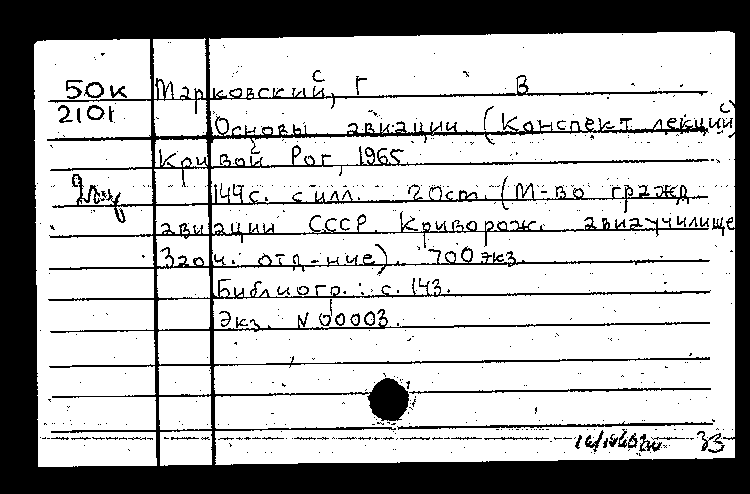 50к Марковский, Г В
2101
Основы авиации (Конспект лекций)
Кривой Рог, 1965
149с. с илл. 20см. (М-во гражд
авиации СССР. Криворож. авиаучилище
Заоч. отд-ние). 700 экз.
Библиогр.: с. 143.
Экз. N 00003.
33